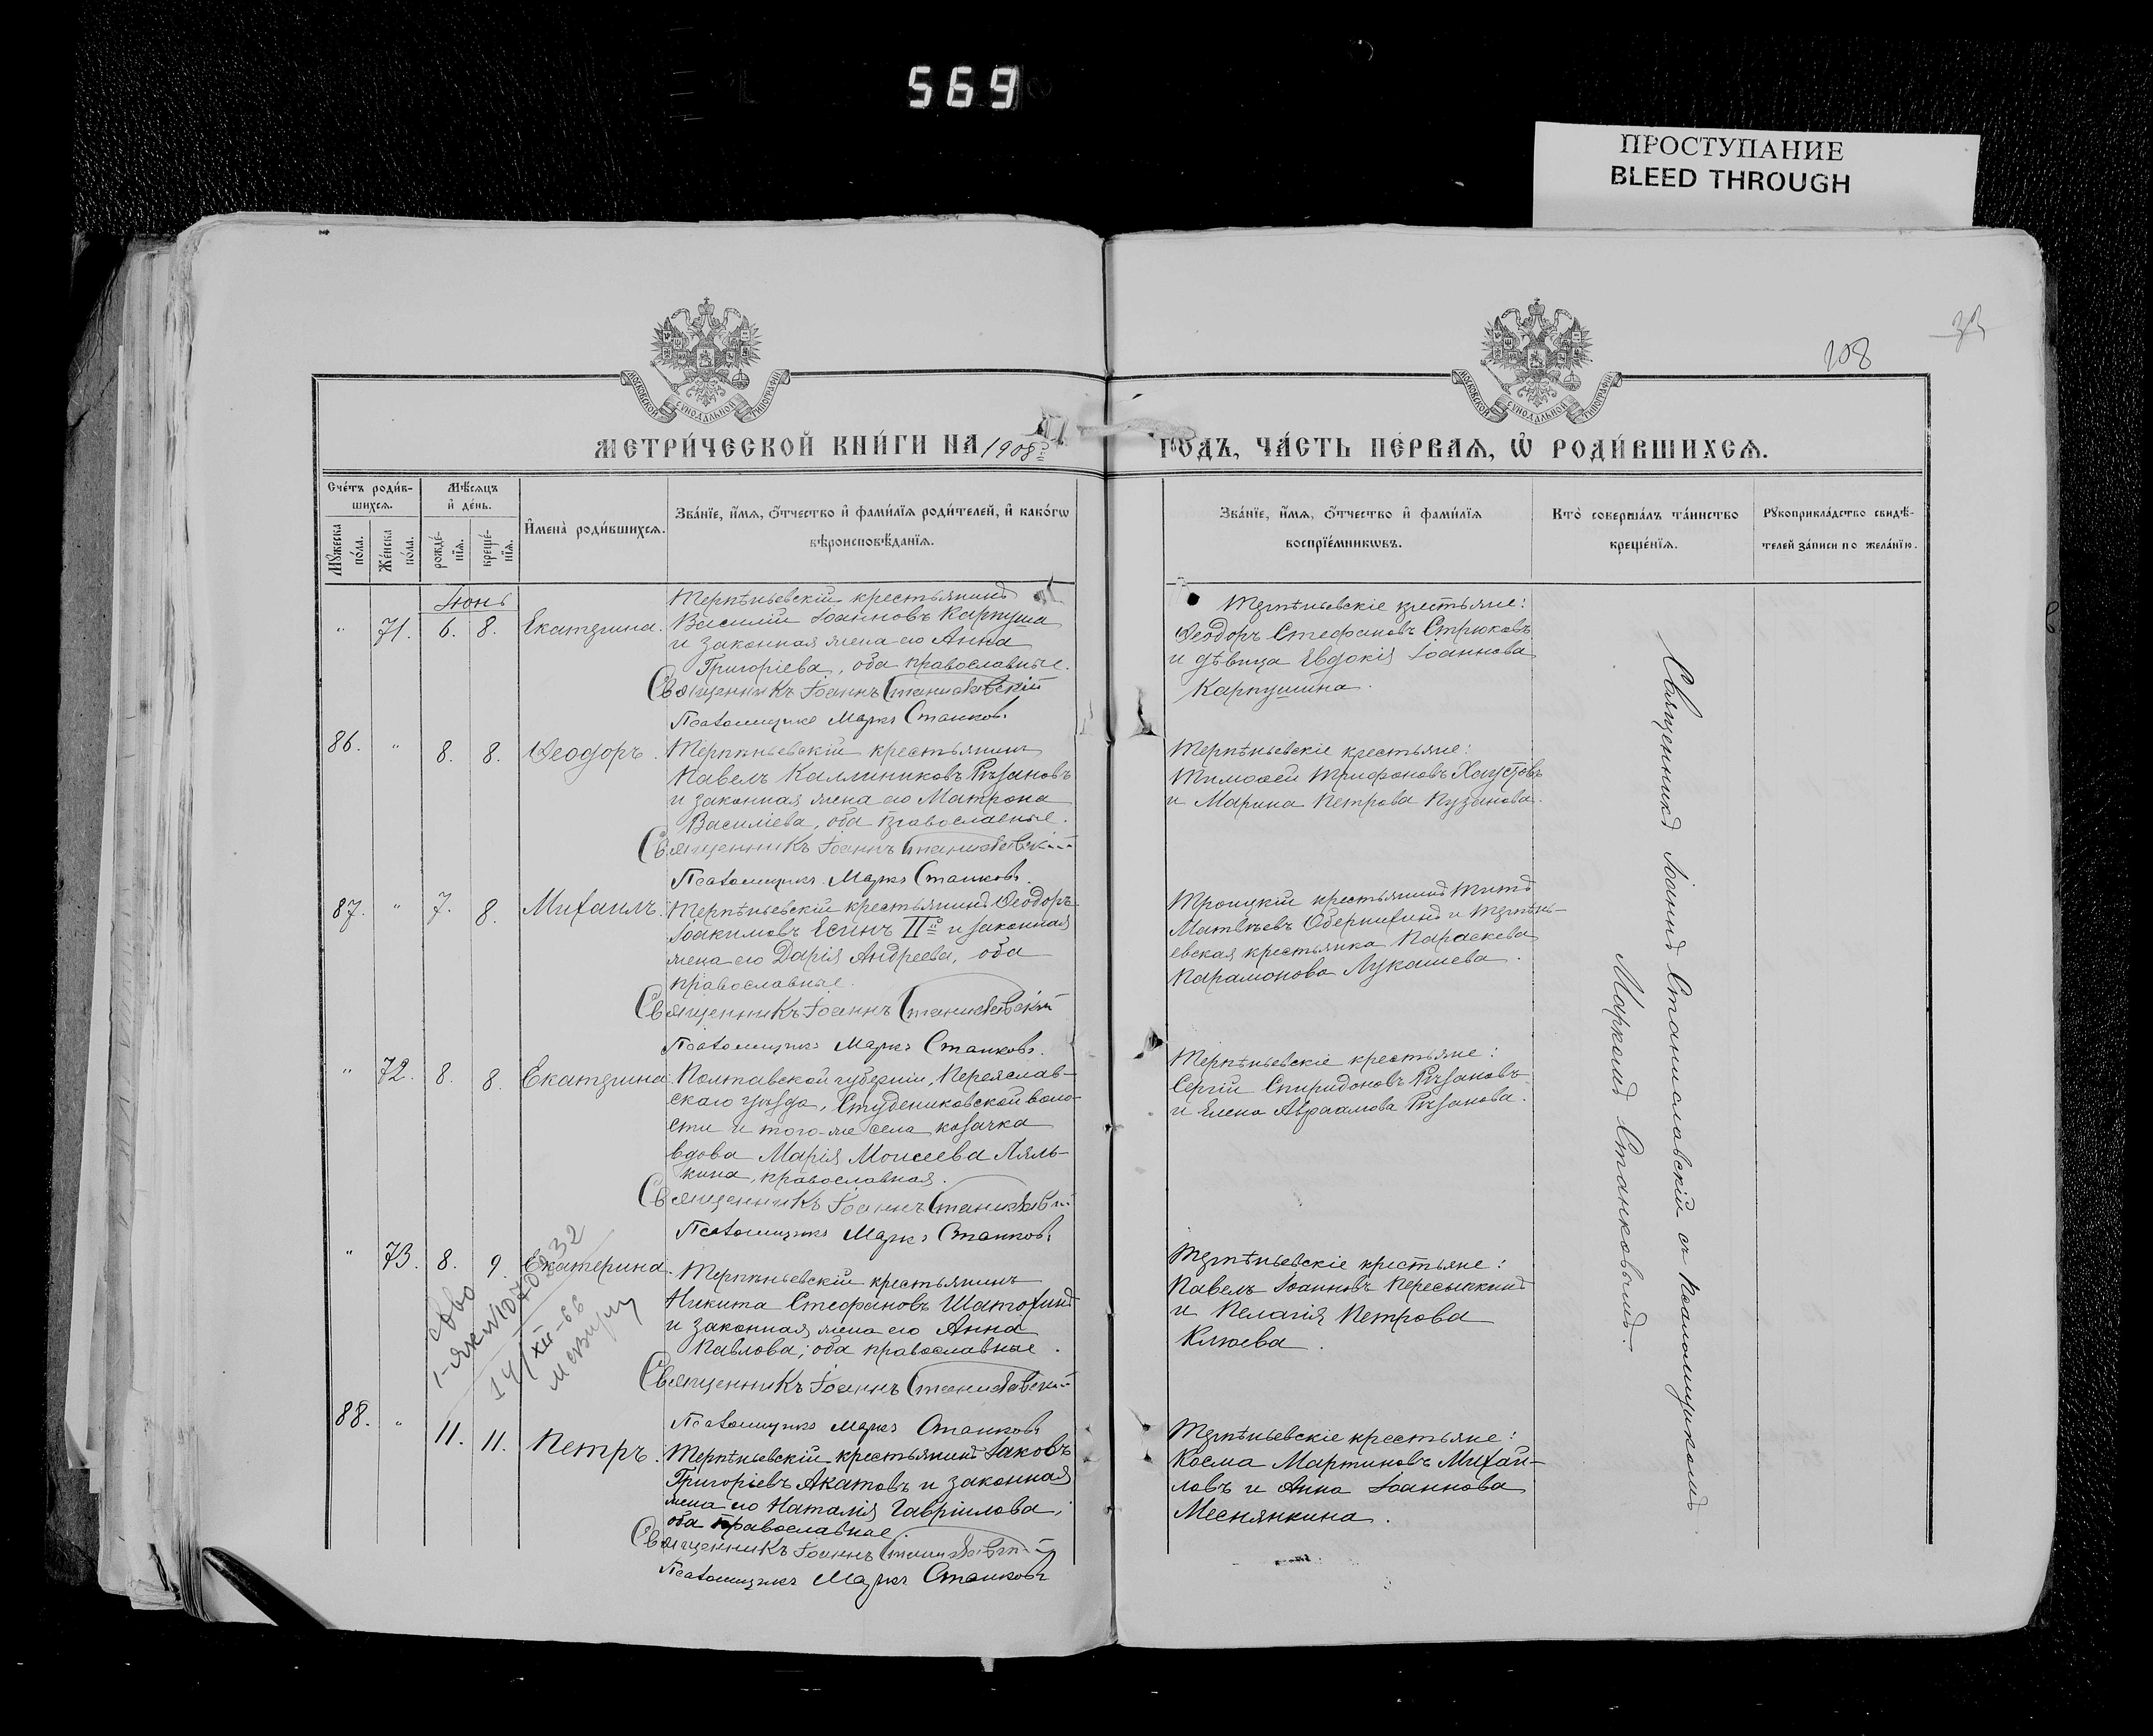 569
ПРОСТУПАНИЕ
BLEED THROUGH
108
МОСКОВСКОЙ СѴНОДАЛЬНОЙ ТИПОГРАФІИ
МОСКОВСКОЙ СѴНОДАЛЬНОЙ ТИПОГРАФІИ
МЕТРИ́ЧЕСКОЙ КНИ́ГИ НА 1908й ГѠДЪ, ЧА́СТЬ ПЕ́РВАѦ, Ѡ҆ РОДИ́ВШИХСѦ.
Счетъ роди́в-
шихсѧ.
Мꙋжеска по́ла.
Же́нска по́ла.
Мѣ́сѧцъ
и҆ де́нь.
рожде́-
нїѧ.
креще́-
нїѧ.
И҆мена̀ роди́вшихсѧ.
Зва́нїе, и҆́мѧ, ѻ҆́тчество и҆ фами́лїѧ роди́телей, и҆ како́гѡ
вѣроисповѣ́данїѧ.
Зва́нїе, и҆́мѧ, ѻ҆́тчество и҆ фами́лїѧ
воспрїе́мникѡвъ.
Кто̀ соверша́лъ та́инство
креще́нїѧ.
Рꙋкоприкла́дство свидѣ́-
телей за́писи по жела́нїю.
Іюнь
" 71. 6. 8. Екатерина.
Терпѣньевскій крестьянинъ
Василій Іоанновъ Карпуша
и законная жена его Анна
Григоріева, оба православные.
Священникъ Іоаннъ Станиславскій
Псаломщикъ Маркъ Станковъ
Терпѣньевскіе крестьяне:
Ѳеодоръ Стефановъ Стрюковъ
и дѣвица Евдокія Іоаннова
Карпушина.
86. " 8. 8. Ѳеодоръ.
Терпѣньевскій крестьянинъ
Павелъ Каллиниковъ Рѣзановъ
и законная жена его Матрона
Василіева, оба православные.
Священникъ Іоаннъ Станиславскій
Псаломщикъ Маркъ Станковъ.
Терпѣньевскіе крестьяне:
Тимоѳей Трифоновъ Хаустовъ
и Марина Петрова Пузанова.
87. " 7. 8. Михаилъ.
Терпѣньевскій крестьянинъ Ѳеодоръ
Іоакимовъ Есинъ IIй и законная
жена его Дарія Андреева, оба
православные.
Священникъ Іоаннъ Станиславскій
Псаломщикъ Маркъ Станковъ.
Троицкій крестьянинъ Титъ
Матвѣевъ Обернихинъ и Терпѣнь-
евская крестьянка Параскева
Парамонова Лукашева.
" 72. 8. 8. Екатерина
Полтавской губерніи, Переяслав-
скаго уѣзда, Студениковской воло-
сти и того-же села козачка
вдова Марія Моисеева Ляль-
кина, православная.
Священникъ Іоаннъ Станиславскій
Псаломщикъ Маркъ Станковъ
Терпѣньевскіе крестьяне:
Сергій Спиридоновъ Рѣзановъ
и Елена Авраамова Рѣзанова.
" 73. 8. 9. Екатерина.
Терпѣньевскій крестьянинъ
Никита Стефановъ Шатохинъ
и законная жена его Анна
Павлова; оба православные.
Священникъ Іоаннъ Станиславскій
Псаломщикъ Маркъ Станковъ
Терпѣньевскіе крестьяне:
Павелъ Іоанновъ Пересыпкинъ
и Пелагія Петрова
Клюева.
88. " 11. 11. Петръ.
Терпѣньевскій крестьянинъ Іаковъ
Григоріевъ Акатовъ и законная
жена его Наталія Гавріилова;
оба православные.
Священникъ Іоаннъ Станиславскій
Псаломщикъ Маркъ Станковъ
Терпѣньевскіе крестьяне:
Косма Мартиновъ Михай-
ловъ и Анна Іоаннова
Меснянкина.
Священникъ Іоаннъ Станиславскій съ псаломщикомъ
Маркомъ Станковымъ.